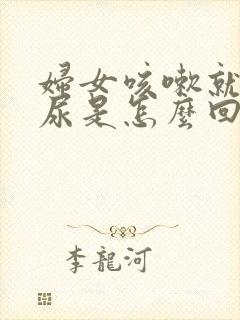 婦女咳嗽就
尿是怎麼回
李龍河